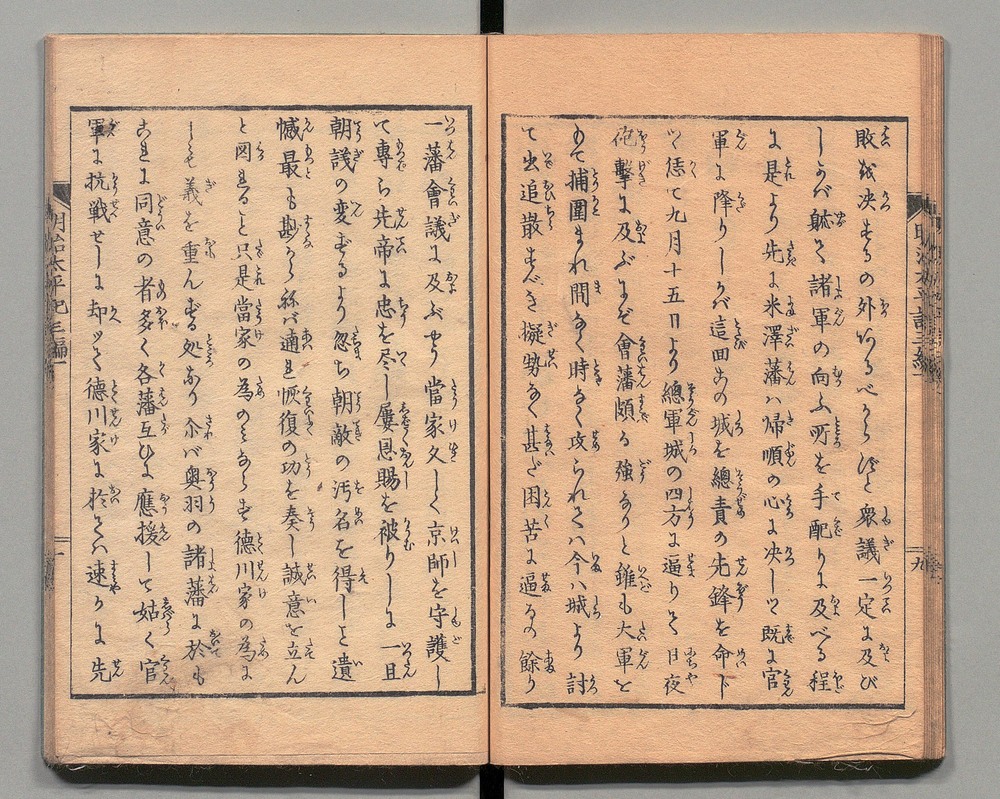 敗を决するの外あるべからずと衆議一定に及び
しかバ軈て諸軍の向ふ所を手配りに及べる程
に是より先に米澤藩ハ帰順の心に决しツヽ既に官
軍に降りしかバ這回この城を總責の先鋒を命ド
ツヽ恁て九月十五日より總軍城の四方に逼りそ日夜
砲撃に及ぶにぞ會藩頗る強なりと雖も大軍を
もて捕圍まれ間なく時なく攻られてハ今ハ城より討
て出追散すべき擬勢なく甚だ困苦に逼るの餘り
一藩會議に及ぶやう當家久しく京師を守護し
て專ら先帝に忠を尽し屡恩賜を被りしに一旦
朝議の変ずるより忽ち朝敵の汚名を得しを遺
憾最も尠から孫バ適ま恢復の功を奏し誠意を立ん
と図ること只是當家の為のミならず德川家の為に
しも義を重んずる処あり尒バ奥羽の諸藩に於も
これに同意の者多く各藩互ひに應援して姑く官
軍に抗戦せしに却ツて德川家に於てハ速かに先
明治太平記三編
九